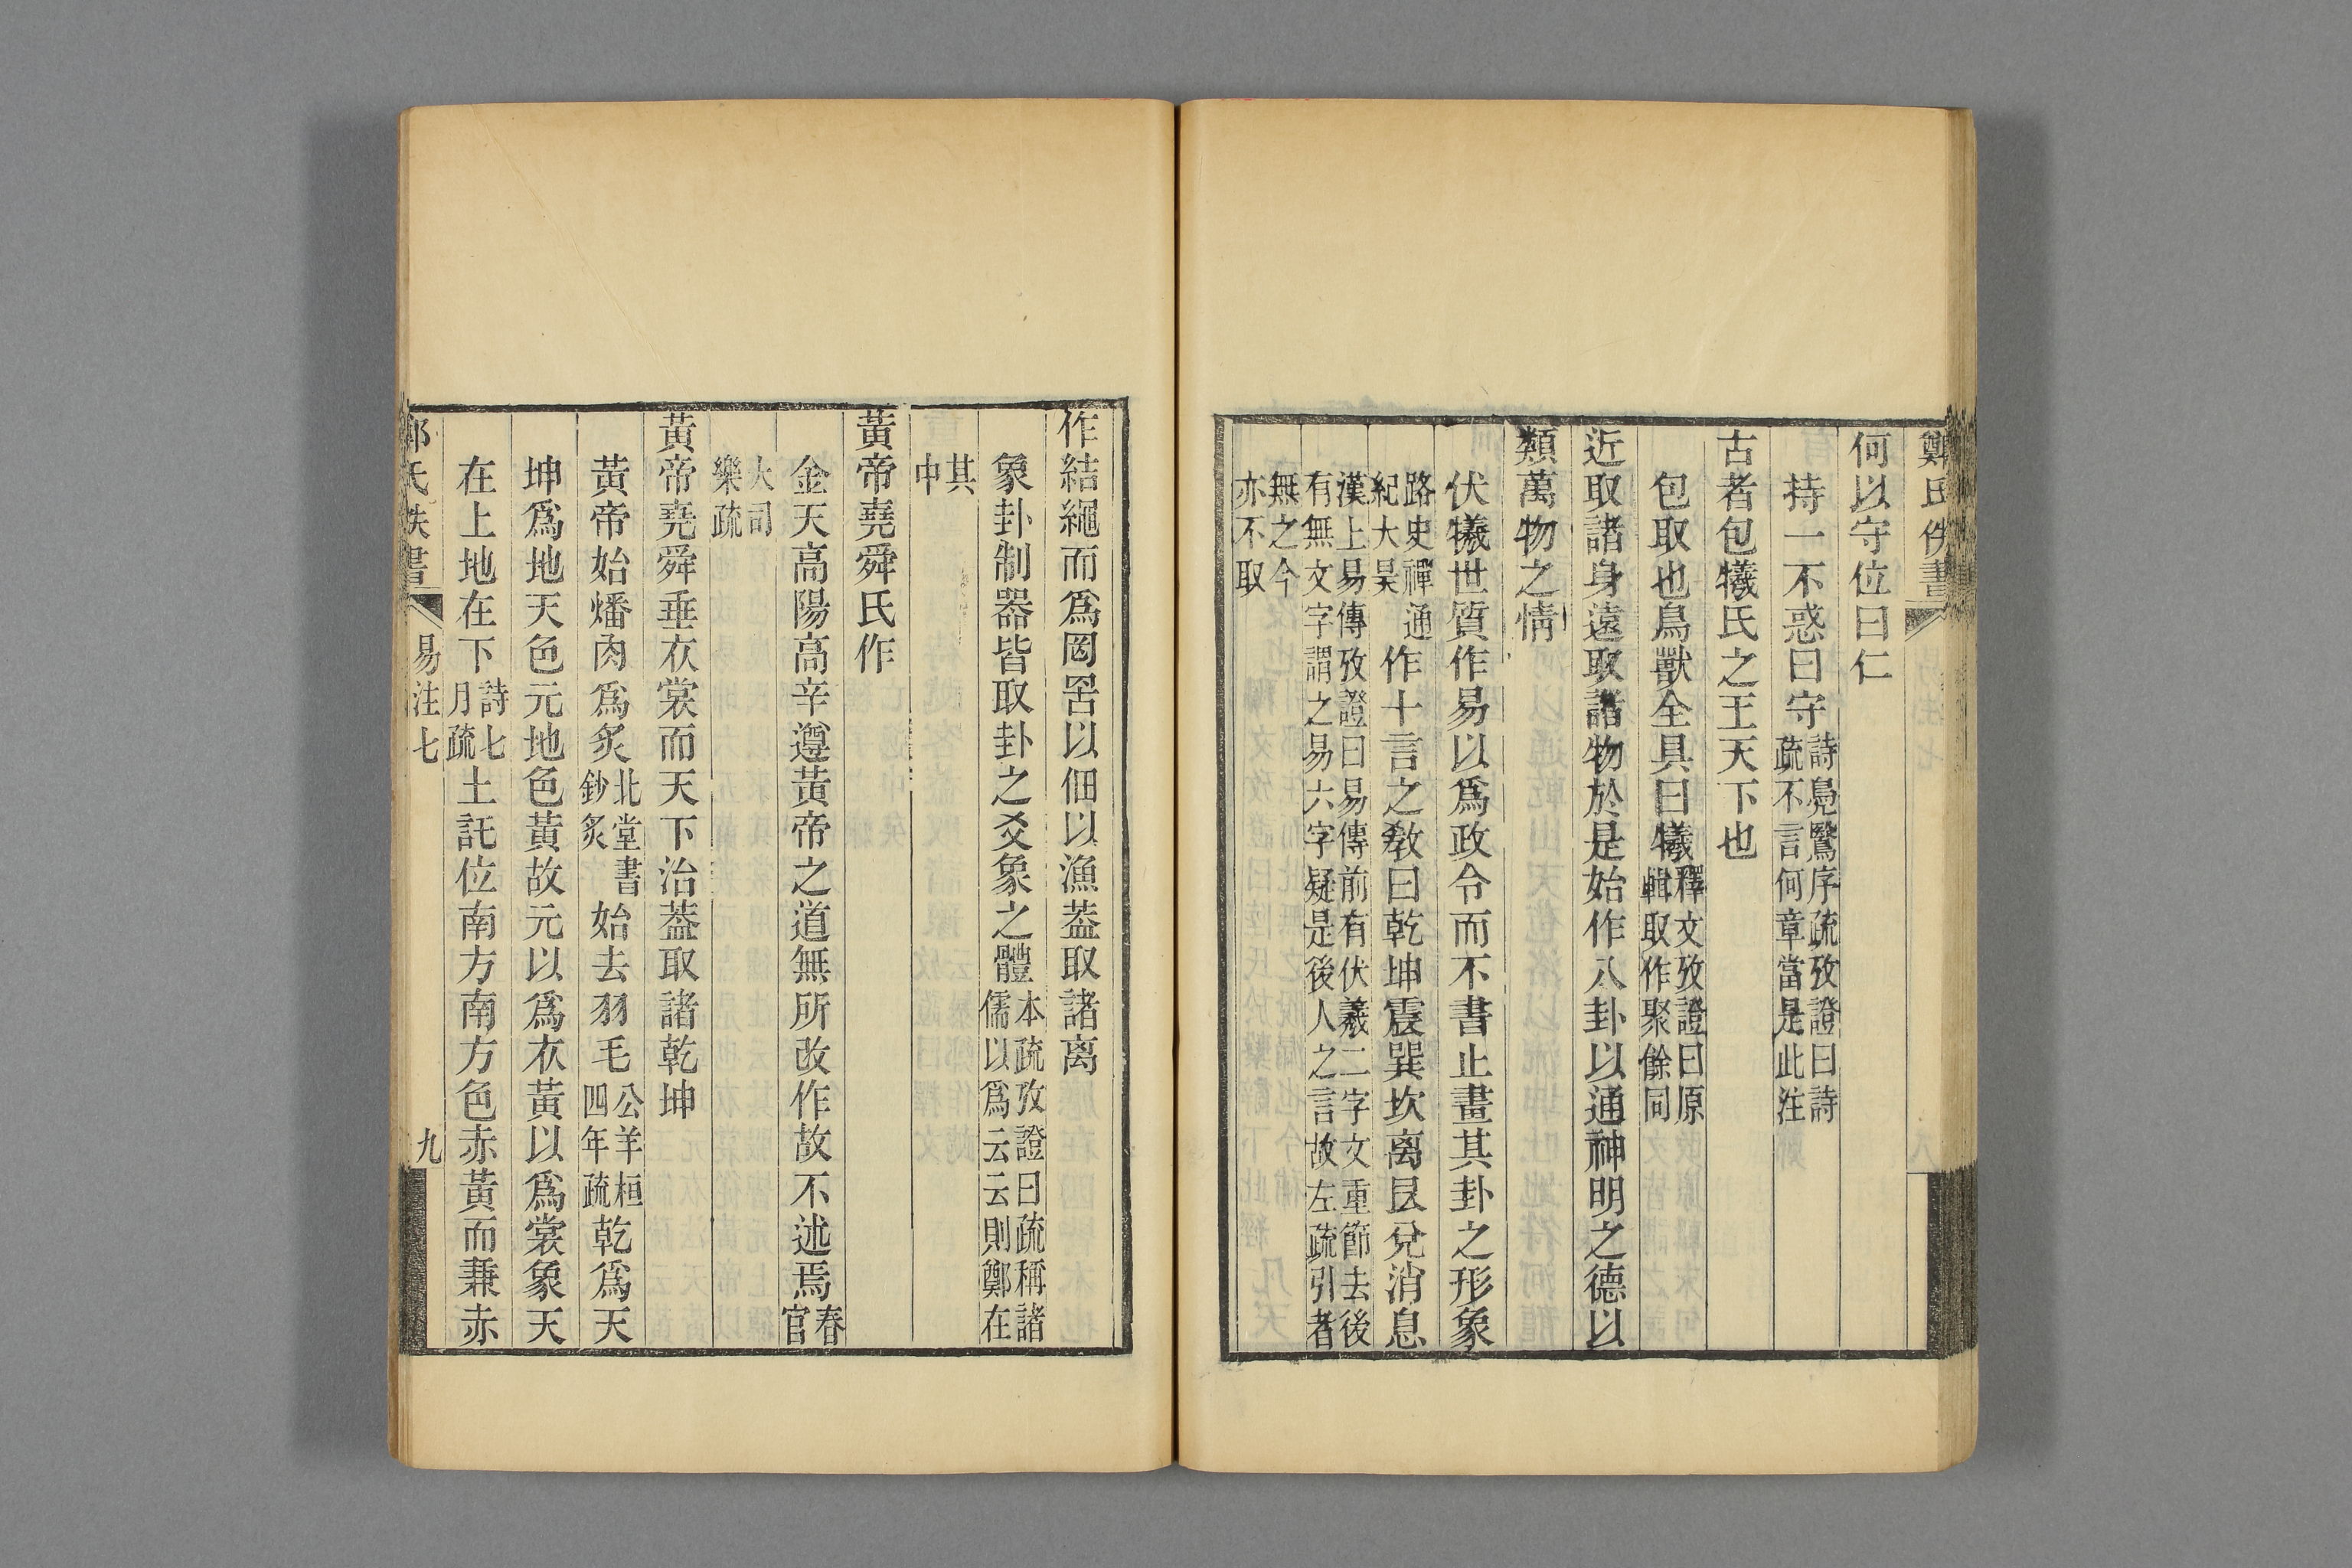 鄭氏佚書
何以守位曰仁
持一不惑曰守詩鳧鷖序疏攷證曰詩疏不言何章當是此注
古者包犧氏之王天下也
包取也鳥獸全具曰犧釋文攷證曰原輯取作聚餘同
近取諸身遠取諸物於是始作八卦以通神明之德以
類萬物之情
伏犧世質作易以爲政令而不書止畫其卦之形象
路史禪通紀大昊作十言之敎曰乾坤震巽坎离艮兌消息
漢上易傳攷證曰易傳前有伏羲二字文重節去後有無文字謂之易六字疑是後人之言故左疏引者
無之今亦不取
作結繩而爲罔罟以佃以漁蓋取諸离
象卦制器皆取卦之爻象之體本疏攷證曰疏稱諸儒以爲云云則鄭在
其中
黃帝堯舜氏作
金天高陽高辛遵黃帝之道無所改作故不述焉春官
大司樂疏
黃帝堯舜垂衣裳而天下治蓋取諸乾坤
黃帝始燔肉爲炙北堂書鈔炙始去羽毛公羊桓四年疏乾爲天
坤爲地天色元地色黃故元以爲衣黃以爲裳象天
在上地在下詩七月疏土託位南方南方色赤黃而兼赤
鄭氏佚書 易注七 九